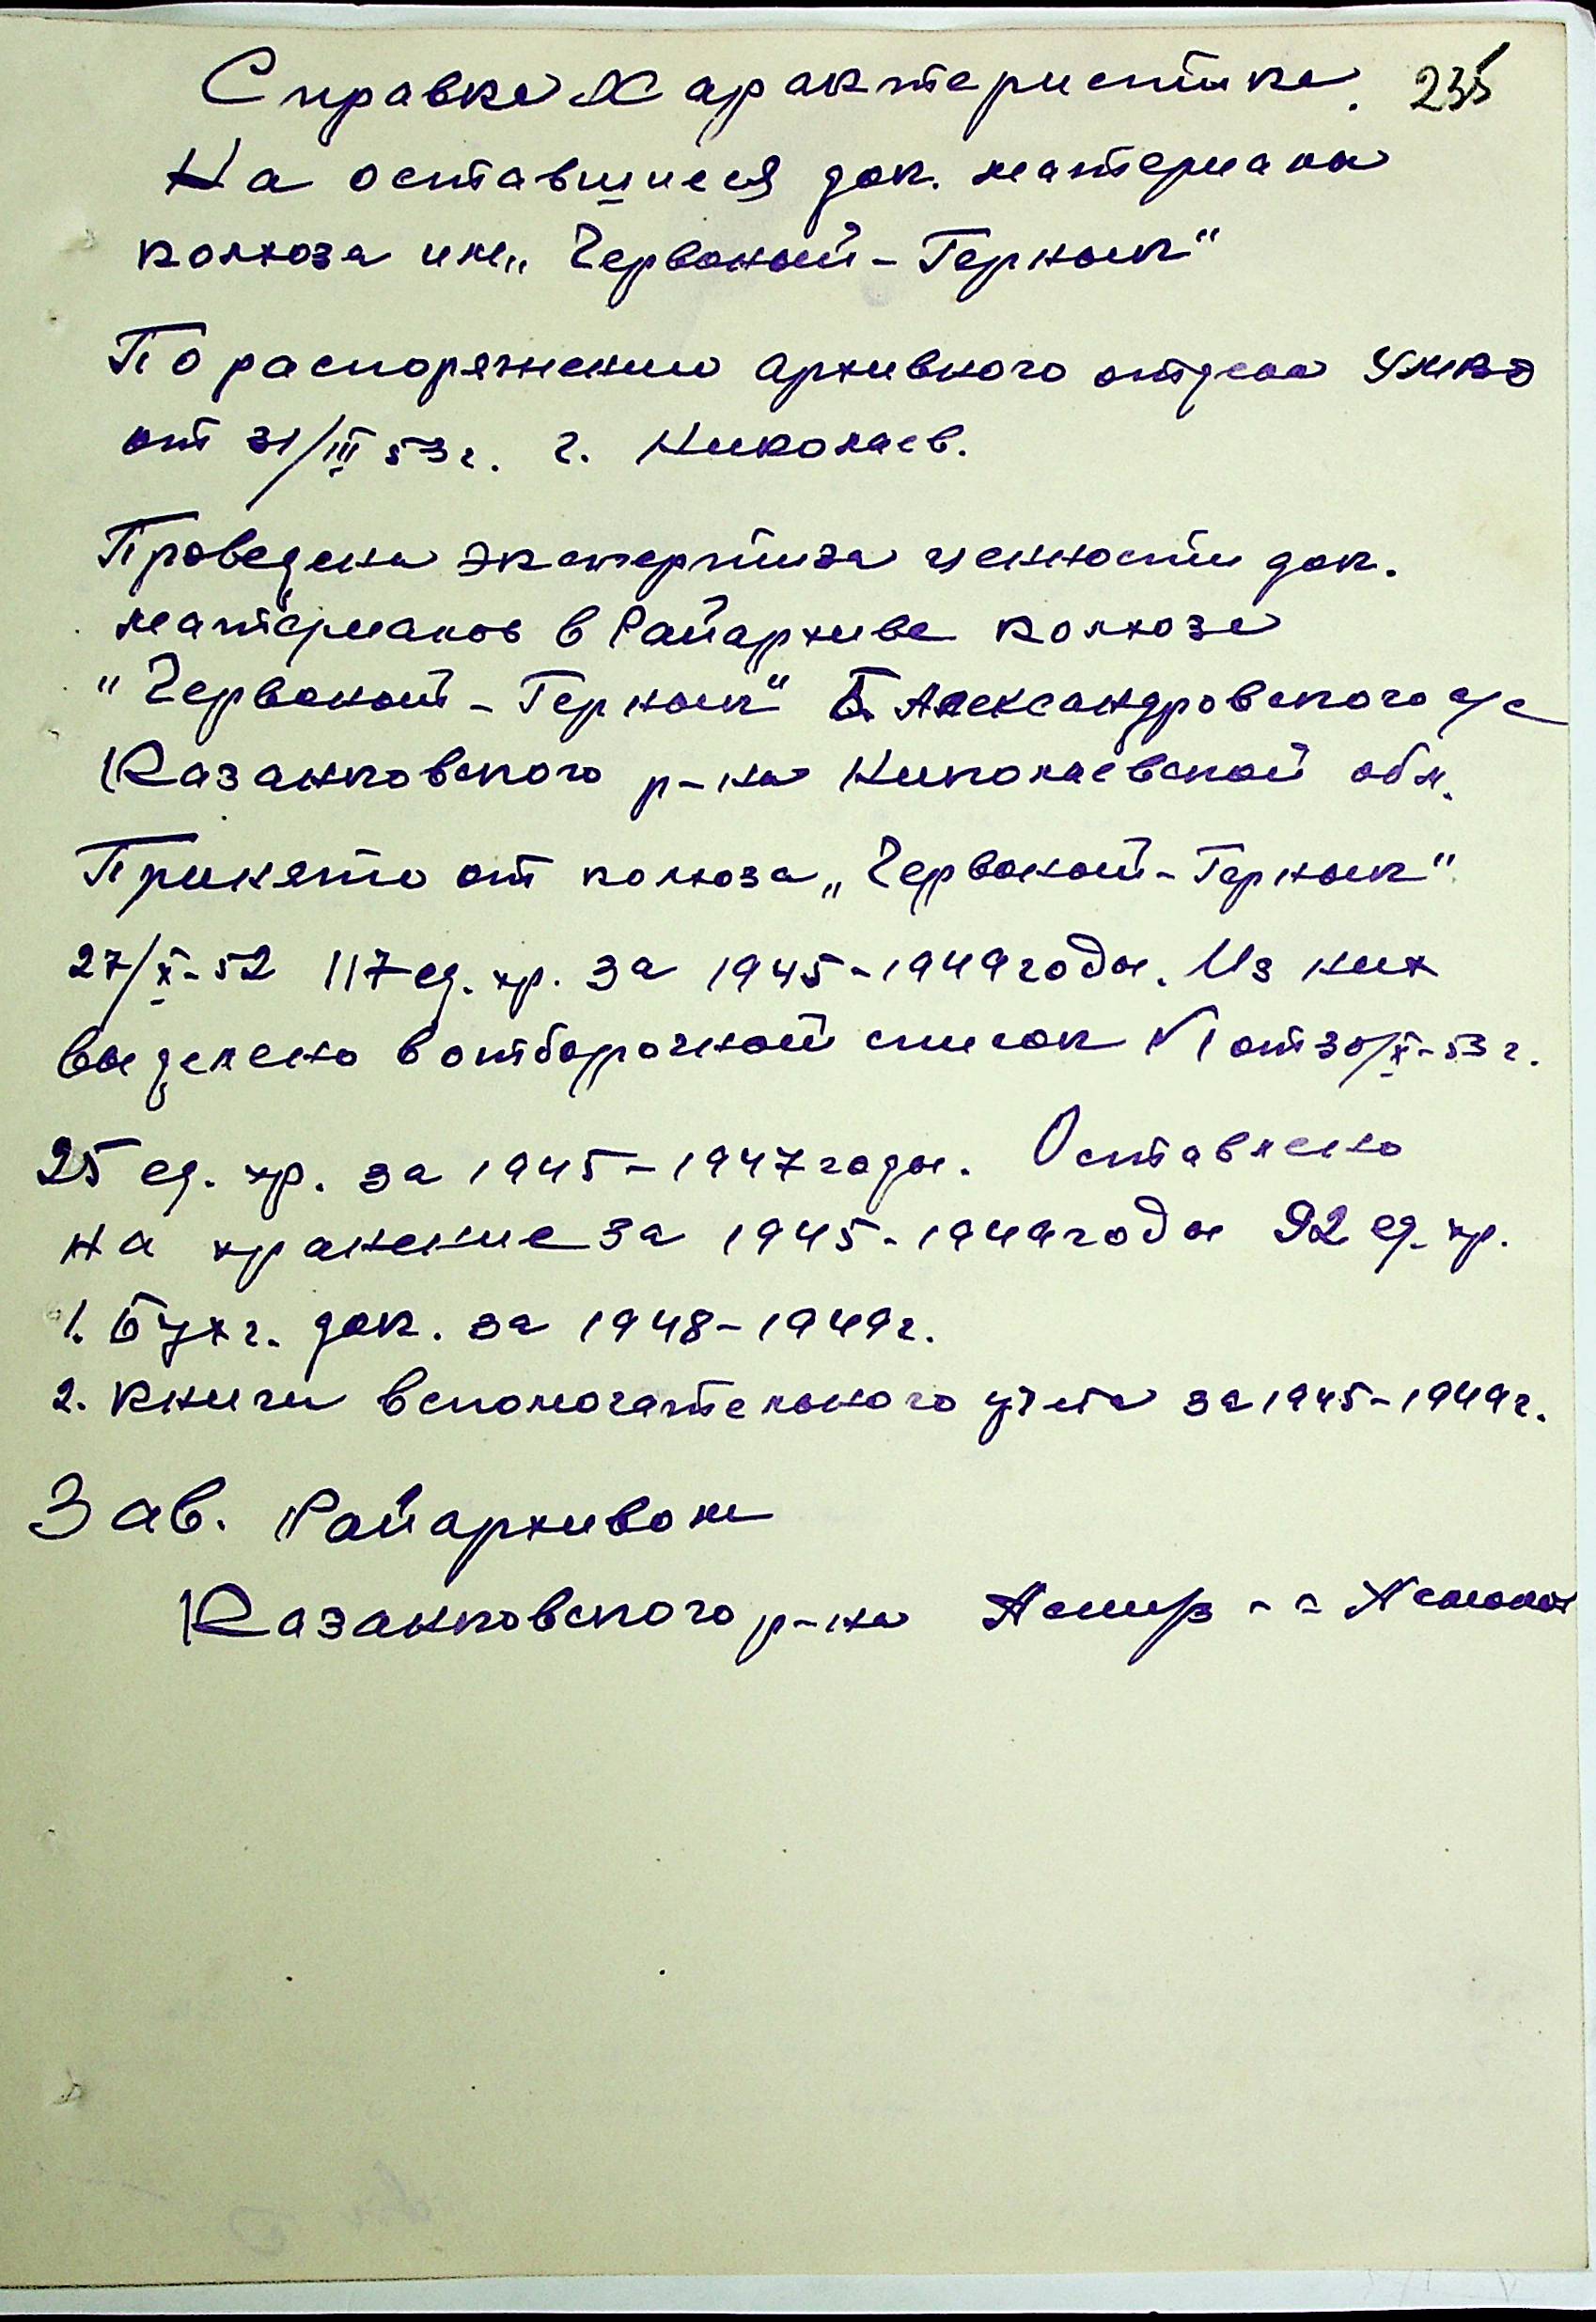 Справка Характеристика. 235
На оставшиеся док. материалы
колхоза им „Червоный-Гернык"
По распоряжению архивного отдела УМВД
от 31/III 53 г. г. Николаев.
Проведена экспертиза ценности док.
материалов в Райархиве колхоза
"Червоный-Гернык" Б. Александровского с/с
Казанковского р-на Николаевской обл.
Принято от колхоза „Червоный-Гернык"
27/X-52 117 ед. хр. за 1945-1949 годы. Из них
выделено в отборочный список №1 от 30/X-53 г.
25 ед. хр. за 1945-1947 годы. Оставлено
на хранение за 1945-1949 годы 92 ед. хр.
1. Бухг. док. за 1948-1949 г.
2. Книги вспомогательного учета за 1945-1949 г.
Зав. Райархивом
Казанковского р-на